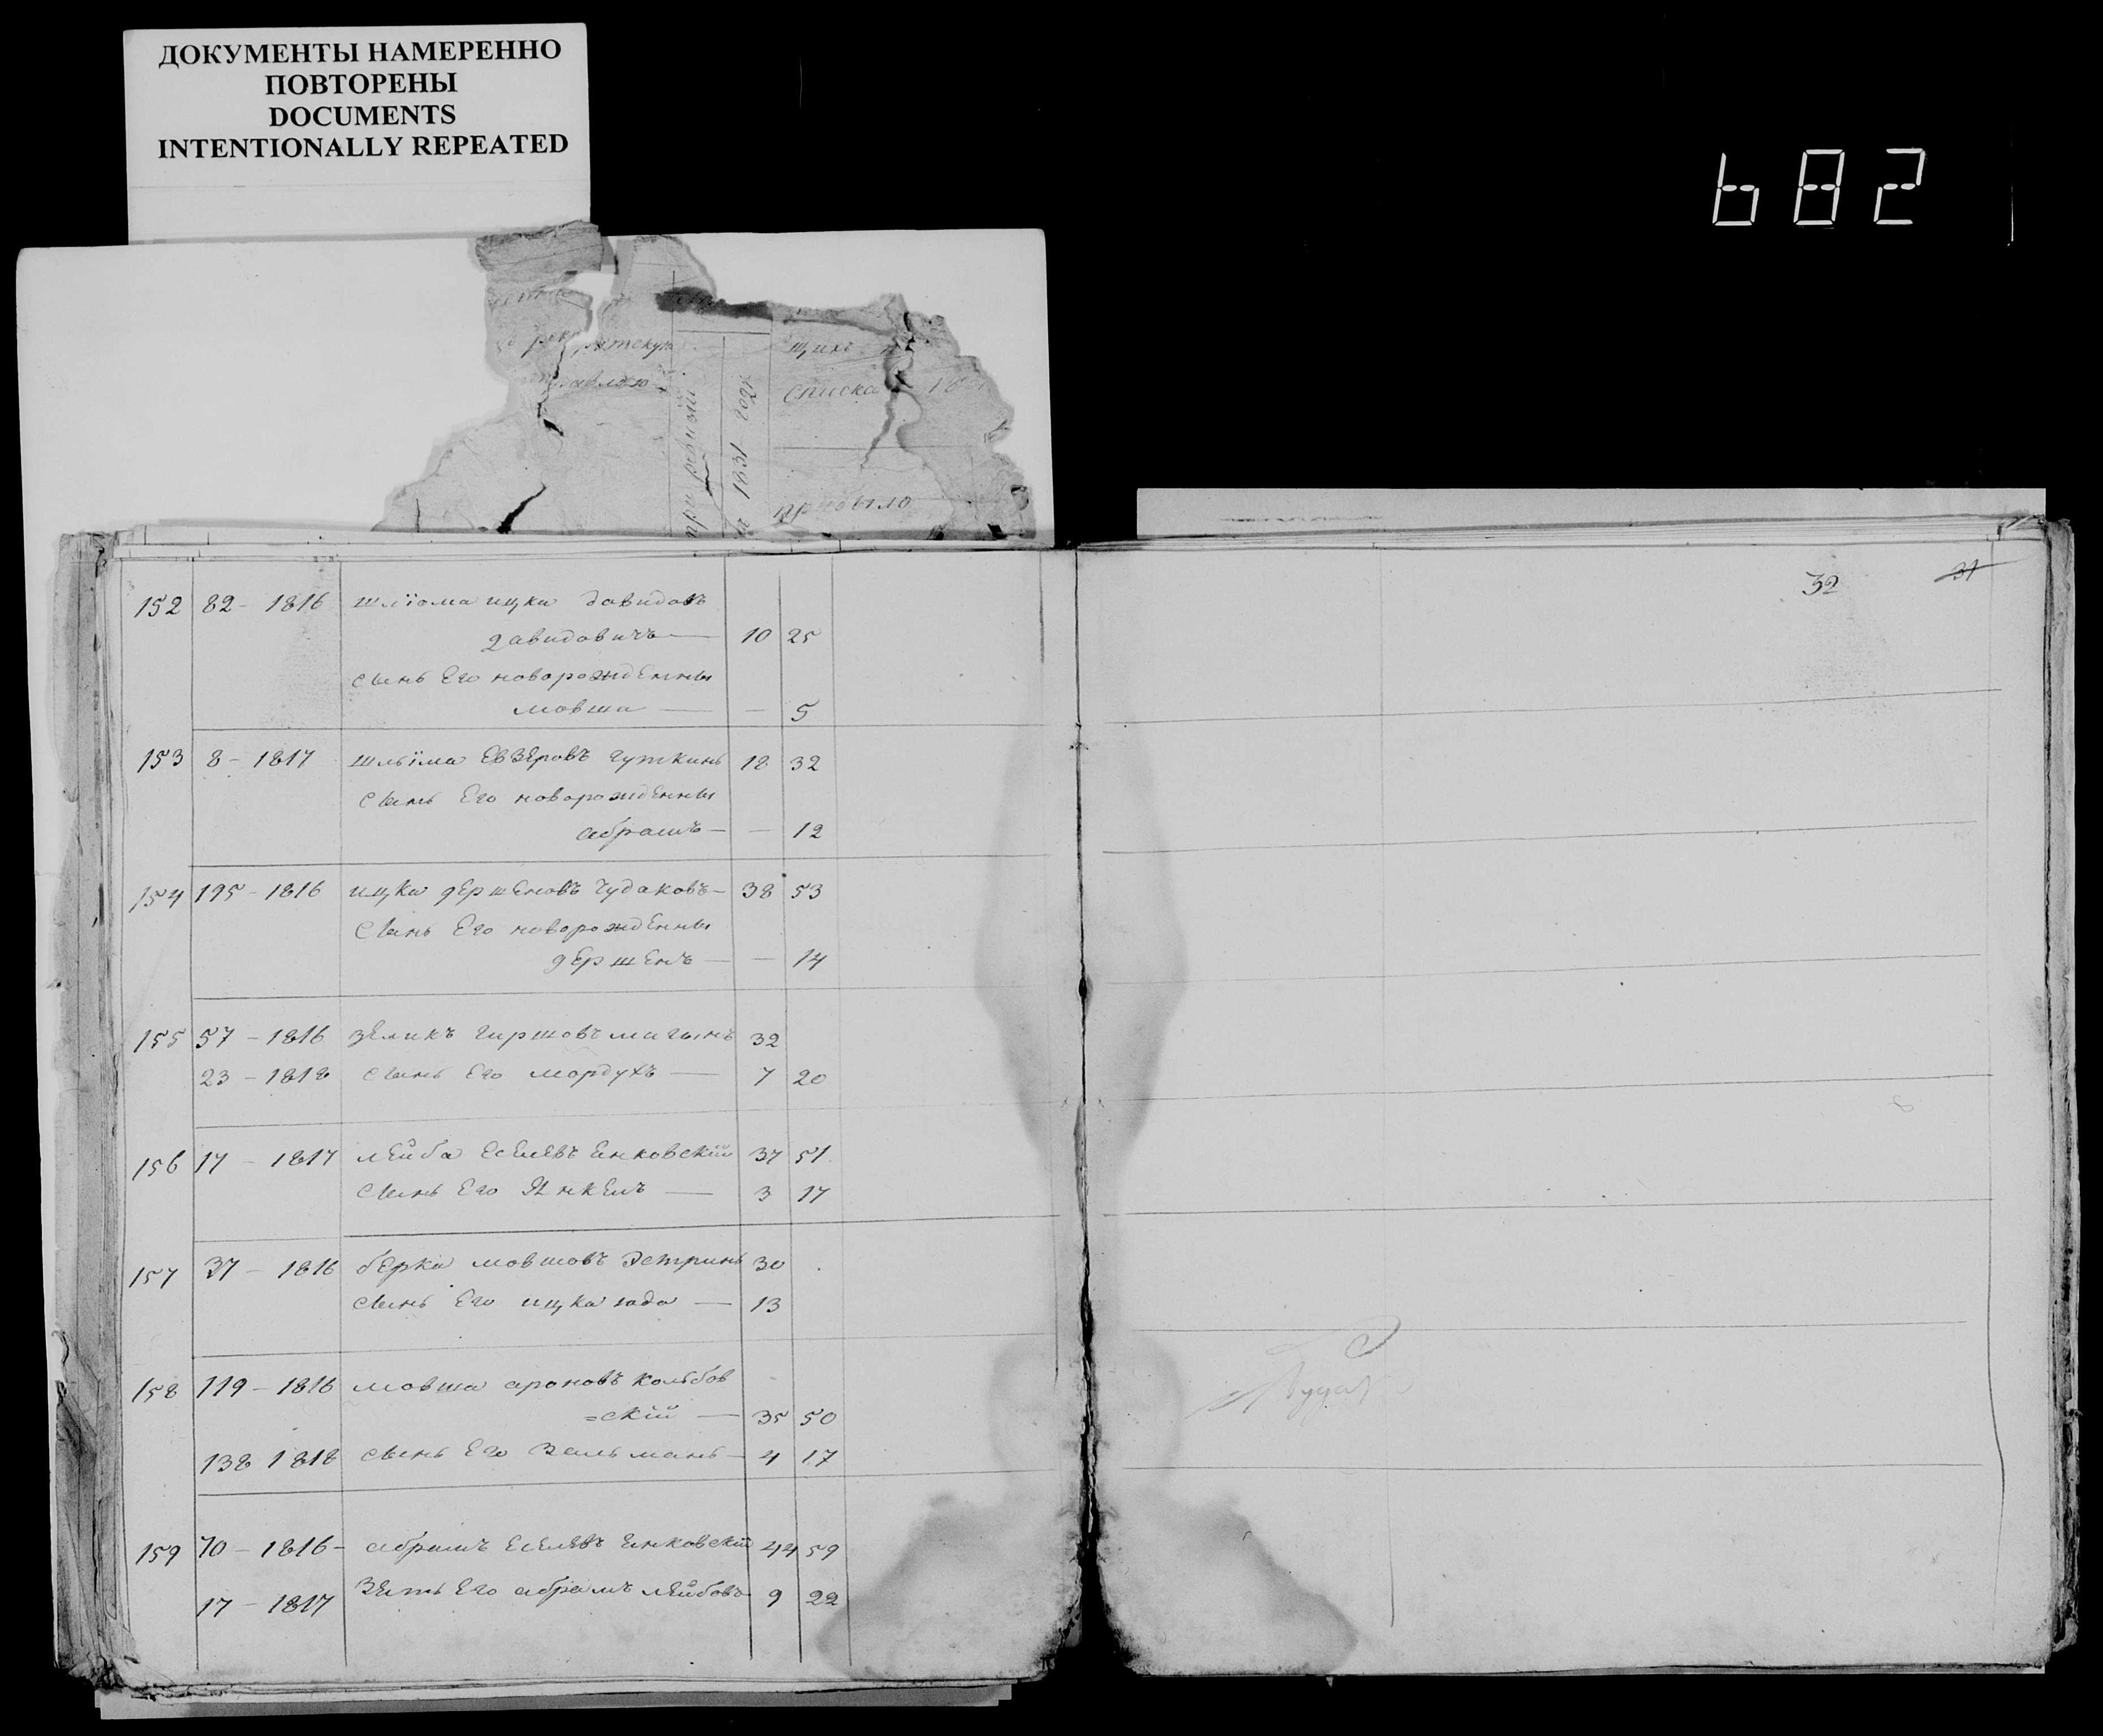 ДОКУМЕНТЫ НАМЕРЕННО
ПОВТОРЕНЫ
DOCUMENTS
INTENTIONALLY REPEATED
682
щихъ
списка
при ревизіи
1831 года
прибыло
32 31
152 82 - 1816 шліома ицка давидовъ
давидовичъ — 10 25
сынъ Его новорожденны
мовша — — 5
153 8 - 1817 шльіма Евзеровъ гуткинъ 18 32
сынъ Его новорожденны
абрамъ — — 12
154 195 - 1816 ицка гершеновъ Чудаковъ — 38 53
сынъ Его новорожденны
гершенъ — — 14
155 57 - 1816 зеликъ гиршовъ 32
23 - 1818 сынъ Его мордухъ — 7 20
156 17 - 1817 лейба Еселевъ Енковскій 37 51
сынъ Его Янкель — 3 17
157 37 - 1816 берка мовшовъ Эстринъ 30
сынъ Его ицка — 13
158 119 - 1816 мовша ароновъ Кольбов
=скій — 35 50
138 1818 сынъ Его Зальманъ — 4 17
159 70 - 1816 - абрамъ Еселевъ Енковскій 44 59
17 - 1817 Зять Его абрамъ лейбовъ 9 22